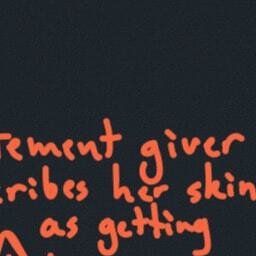 tement giver
cribes her skin
as getting